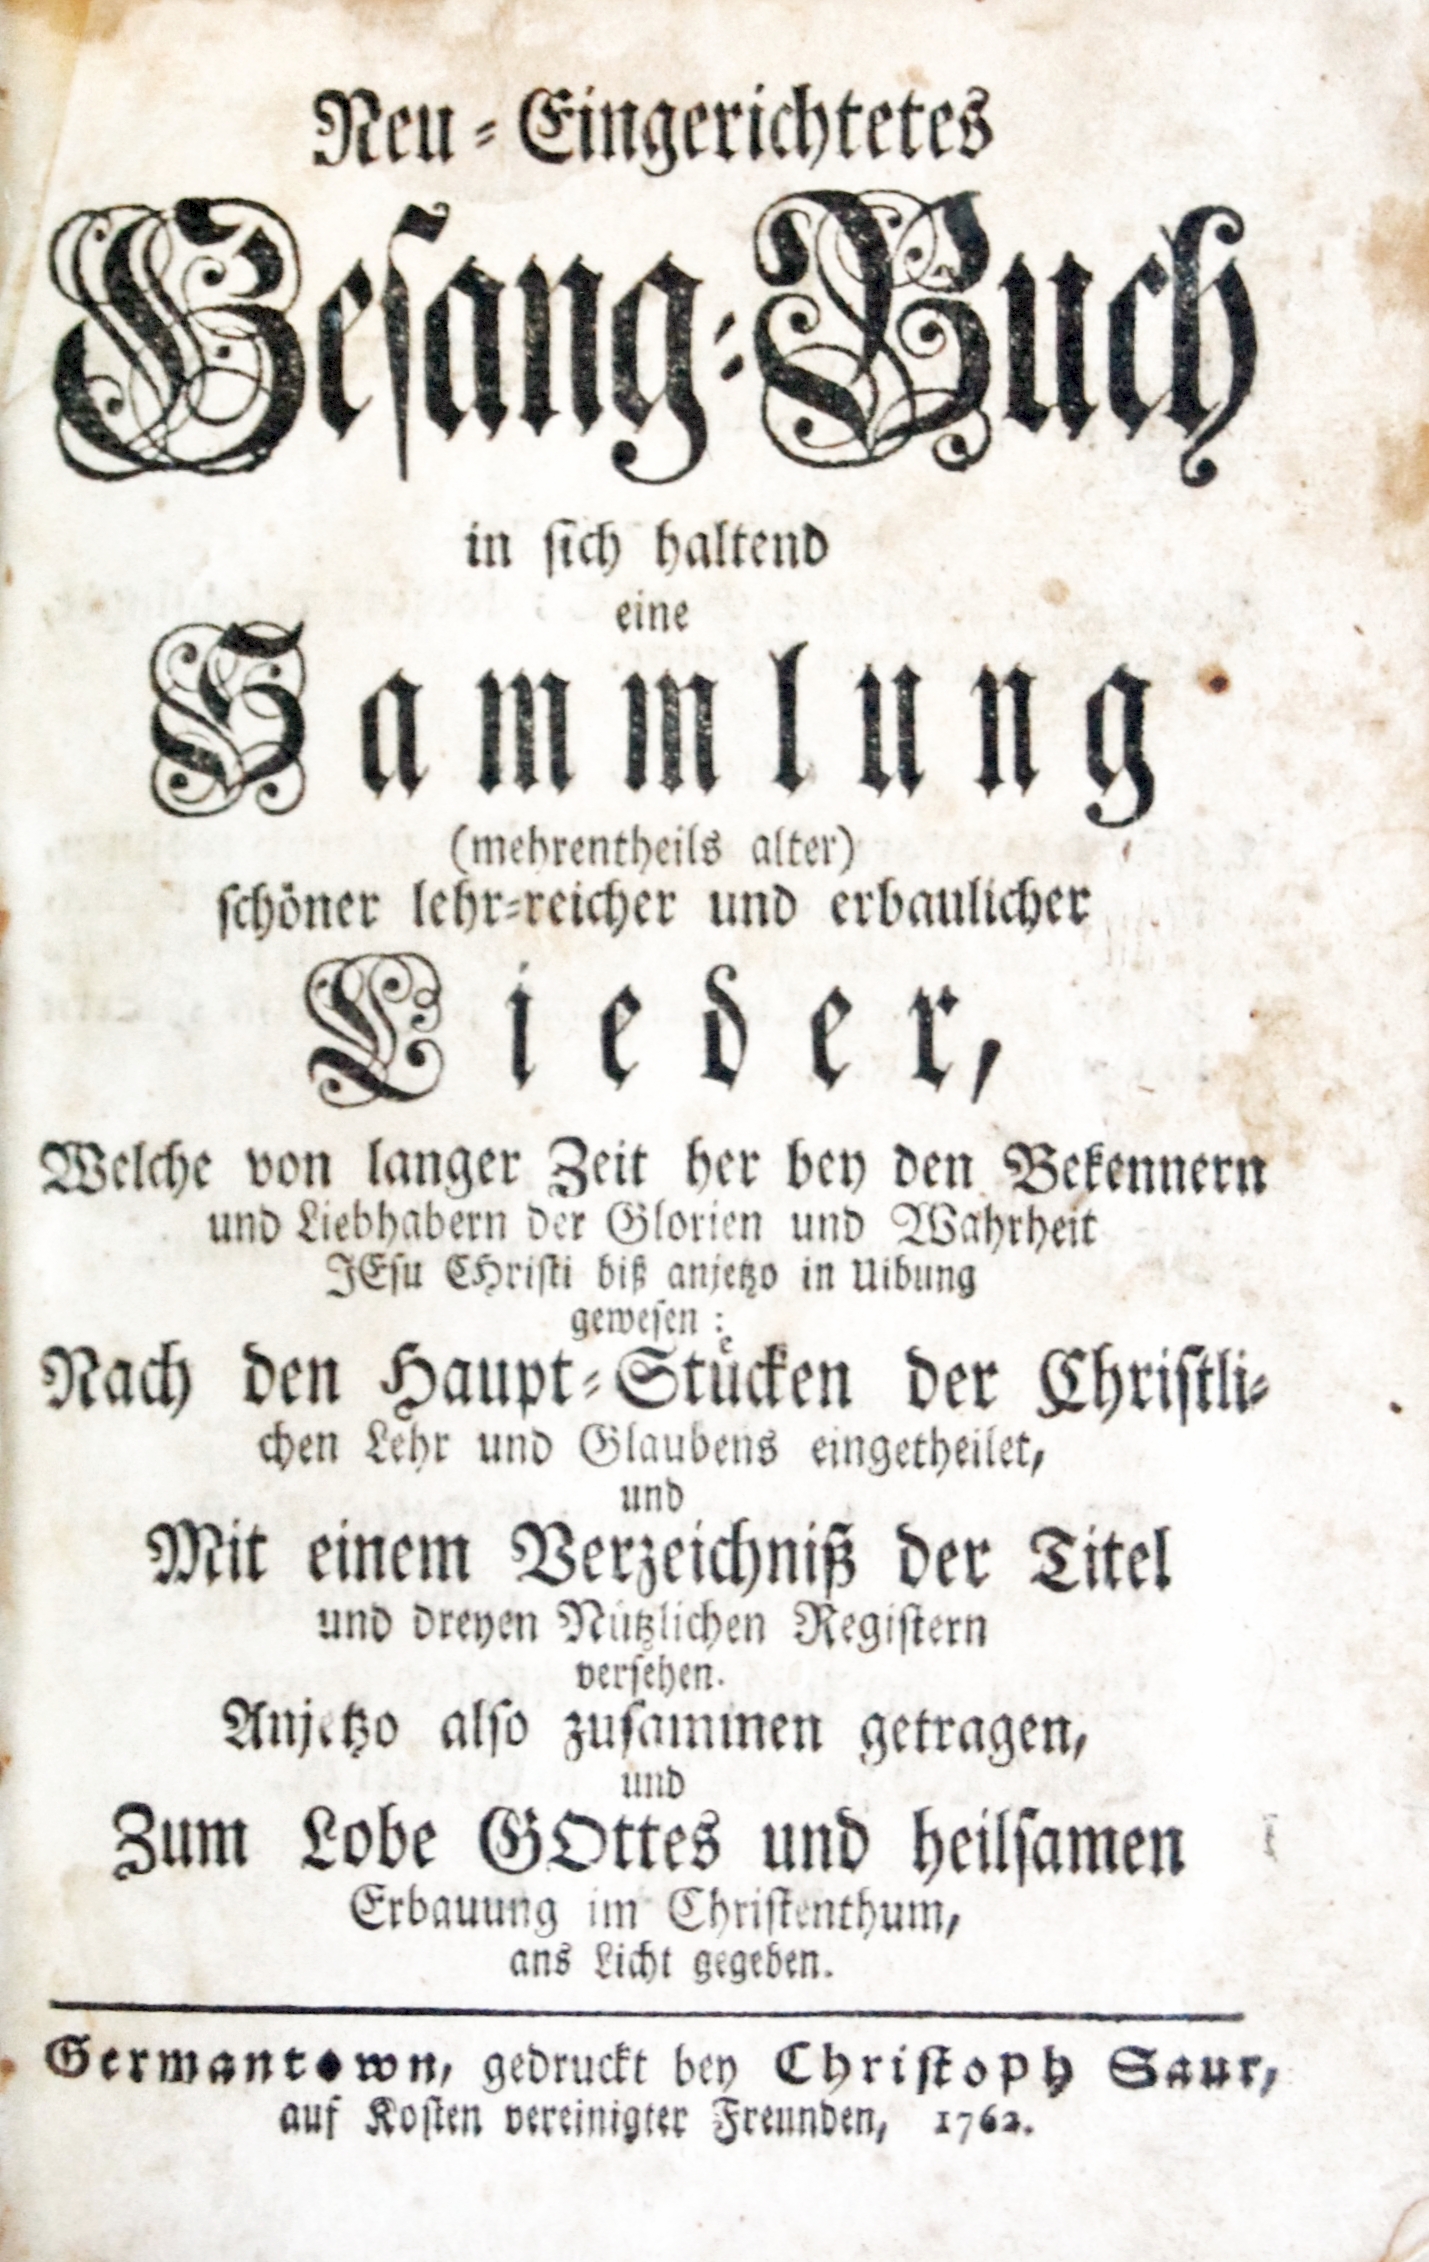 Neu-Eingerichtetes
Gesang-Buch
in sich haltend
eine
Sammlung
(mehrentheils alter)
schöner lehr-reicher und erbaulicher
Lieder,
Welche von langer Zeit her bey den Bekennern
und Liebhabern der Glorien und Wahrheit
JEsu CHristi biß anjetzo in Uibung
gewesen:
Nach den Haupt-Stücken der Christli-
chen Lehr und Glaubens eingetheilet,
und
Mit einem Verzeichniß der Titel
und dreyen Nützlichen Registern
versehen.
Anjetzo also zusammen getragen,
und
Zum Lobe GOttes und heilsamen
Erbauung im Christenthum,
ans Licht gegeben.
Germantown, gedruckt bey Christoph Saur,
auf Kosten vereinigter Freunden, 1762.